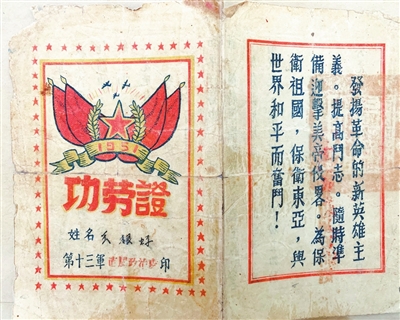 1951
功劳證
姓名
第十三軍 印
發揚革命的新英雄主
義。提高鬥志。隨時準
備迎擊美帝侵畧。為保
衛祖國，保衛東亞，與
世界和平而奮鬥！